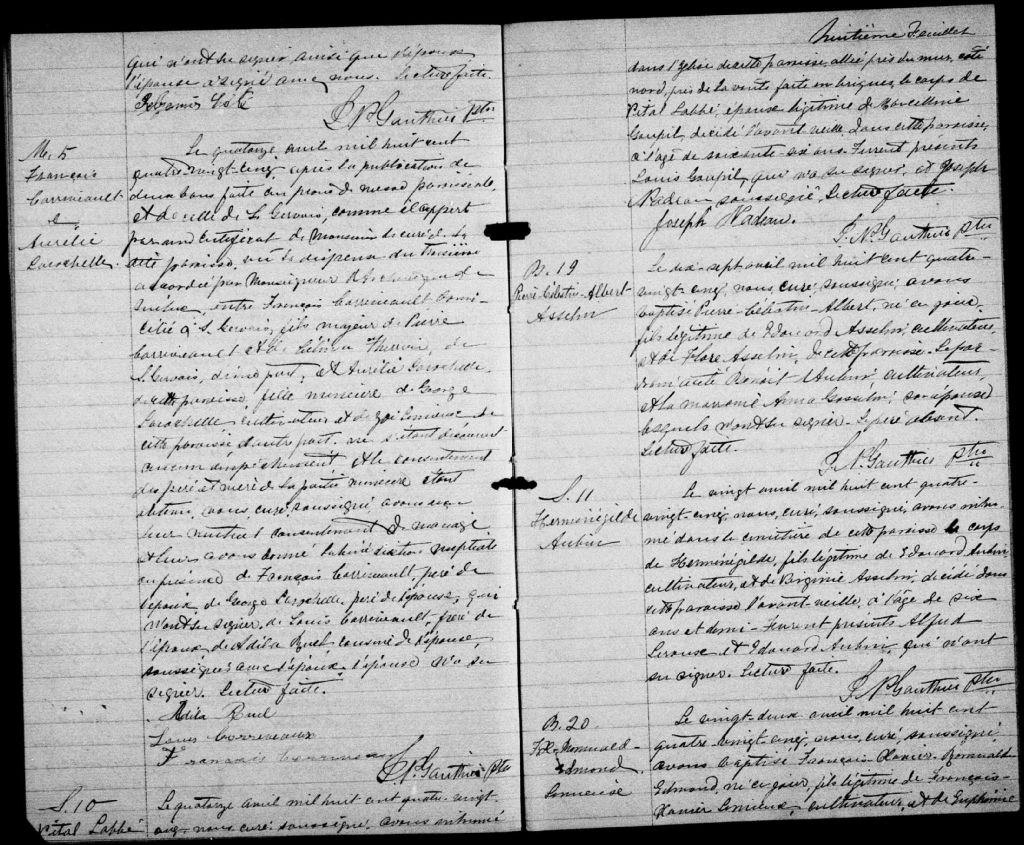 qui n'ont su signer ainsi que l'époux
l'épouse a signé avec nous. Lecture faite.
J. N. Gauthier Ptre
M. 5
François
Carrieault
&
Aurélie
Larochelle.
Le quatorze avril mil huit cent
quatre-vingt-cinq après la publication de
deux bans faite au prône de messe paroissiale
et de celle de St Gervais, comme il appert
par un certificat de Monsieur le curé de la
dite paroisse, vu la dispense du troisième
accordée par Monseigneur l'Archevêque de
Québec, entre François Carrieault domi-
cilié à St Gervais, fils majeur de Pierre
Carrieault et de Thérrien, de
St Gervais, d'une part, et Aurélie Larochelle,
de cette paroisse, fille mineure de George
Larochelle, cultivateur et de Lemieux de
cette paroisse d'autre part. ne s'étant découvert
aucun empêchement et le consentement
des père et mère de la partie mineure étant
obtenu, nous, curé, soussigné, avons reçu
leur mutuel consentement de mariage
et leur avons donné la bénédiction nuptiale
en présence de François Carrieault, père de
l'époux, de George Larochelle, père de l'épouse, qui
n'ont su signer, de Louis Carrieault, frère de
l'époux, de Adila Ruel, cousine de l'épouse,
soussignés avec l'époux. L'épouse n'a su
signer. Lecture faite.
Adila Ruel
Louis Correveaux
Francois
J. N. Gauthier Ptre
S. 10
Vital Labbé
Le quatorze avril mil huit cent quatre-vingt-
cinq, nous, curé, soussigné, avons inhumé
huitième Feuillet
dans l'Eglise de cette paroisse, allée près du mur, côté
nord, près de la voute faite en briques, le corps de
Vital Labbé, époux légitime de Marcelline
Goupil, décédé l'avant veille, dans cette paroisse,
à l'âge de soixante-six ans. Furent présents
Louis Goupil, qui n'a su signer, et Joseph
Nadeau soussigné. Lecture faite.
Joseph Nadeau.
J. N. Gauthier ptre
B. 19
Pierre-Célestin-Albert
Asselin
Le dix-sept avril mil huit cent quatre-
vingt-cinq, nous, curé, soussigné, avons
baptisé Pierre-Célestin-Albert, né ce jour,
fils légitime de Edouard Asselin, cultivateur,
et de Flore Asselin, de cette paroisse. Le par-
rain a été Benoit Aubin, cultivateur,
et la marraine Anna Gosselin, son épouse
lesquels n'ont su signer. Le père absent.
Lecture faite.
J. N. Gauthier ptre
S. 11
Herménégilde
Aubin
Le vingt avril mil huit cent quatre-
vingt-cinq, nous, curé, soussigné, avons inhu-
mé dans le cimetière de cette paroisse le corps
de Herménégilde, fils légitime de Edouard Aubin,
cultivateur, et de Virginie Asselin, décédé dans
cette paroisse l'avant-veille, à l'âge de six
ans et demi. Furent présents Alfred
et Edouard Aubin, qui n'ont
su signer. Lecture faite.
J. N. Gauthier ptre
B. 20
Frs-X-Romuald-
Edmond
Lemieux
Le vingt-deux avril mil huit cent
quatre-vingt-cinq, nous, curé, soussigné
avons baptisé François-Xavier-Romuald-
Edmond, né ce jour, fils légitime de François-
Xavier Lemieux, cultivateur, et de Euphémie